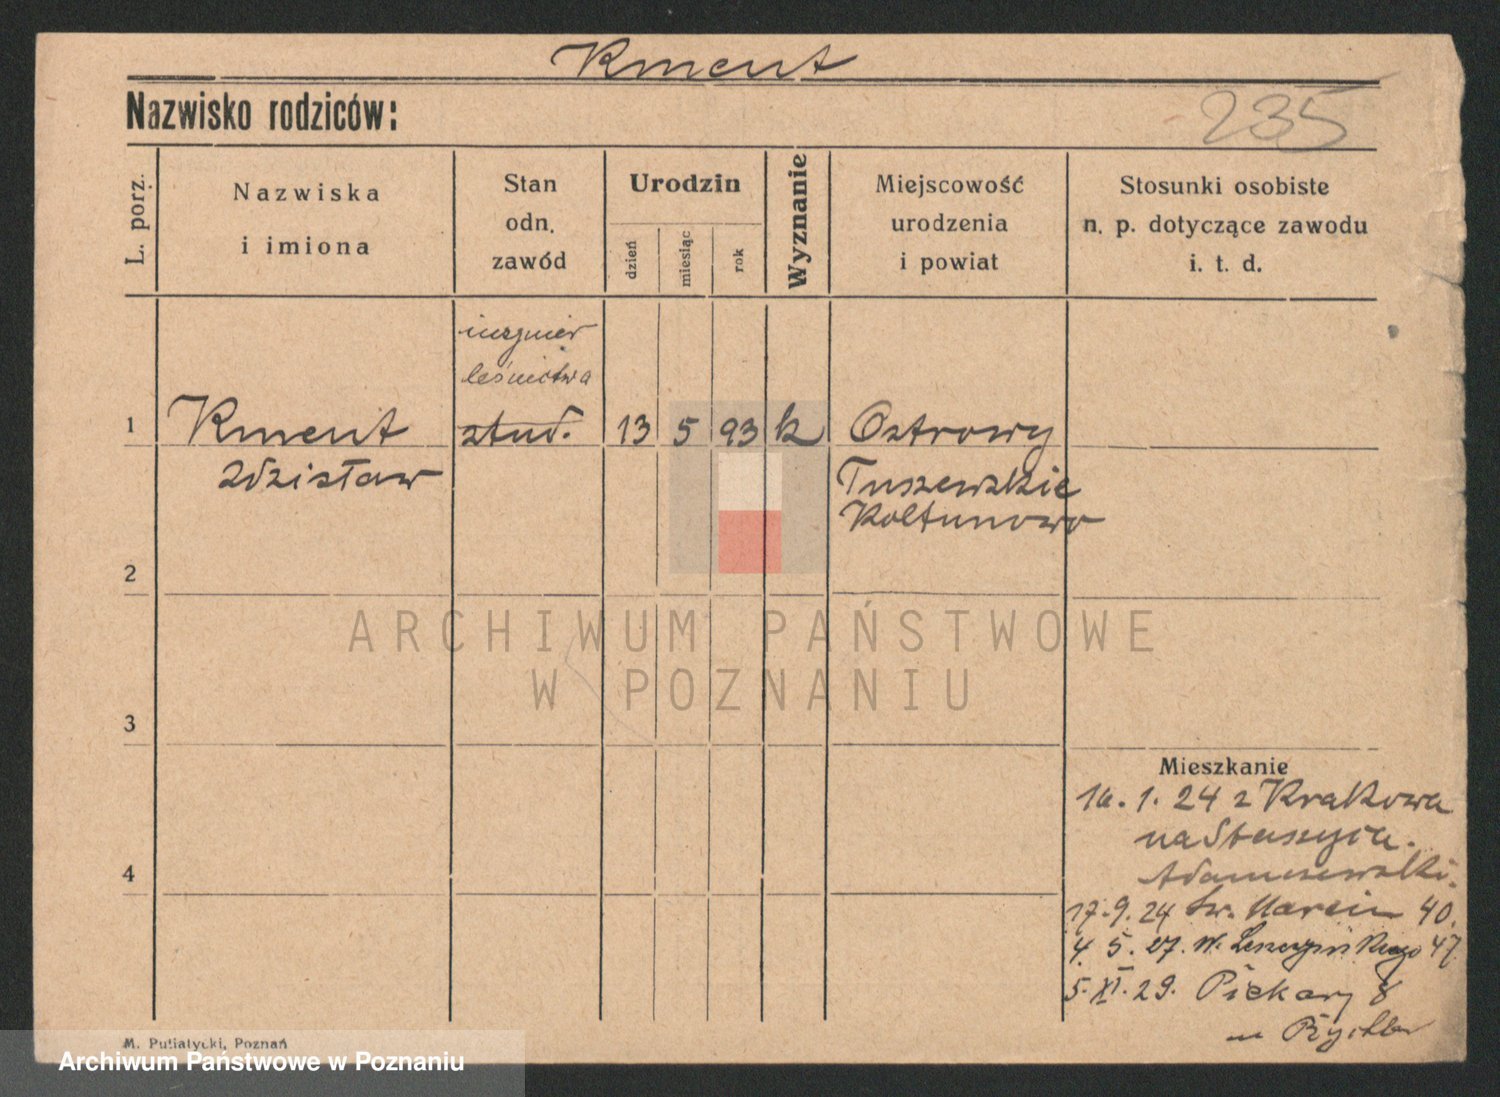 Kment
Nazwisko rodziców:
235
L. porz.
Nazwiska
i imiona
Stan
odn.
zawód
Urodzin
dzień
miesiąc
rok
Wyznanie
Miejscowość
urodzenia
i powiat
Stosunki osobiste
n. p. dotyczące zawodu
i. t. d.
inżynier
leśnictwa
1 Kment stud. 13 5 93 k Ostrowy
Zdzisław Tuszewskie
Kołtunowo
2
ARCHIWUM PAŃSTWOWE
W POZNANIU
3
Mieszkanie
16. 1. 24 z Krakowa
na Staszyca.
Adamszewski.
4
17. 9. 24 Św. Marcin 40.
4. 5. 27. W. Leszczyńskiego 47
5. XI. 29. Piekary 8
M. Putiatycki, Poznań
Archiwum Państwowe w Poznaniu